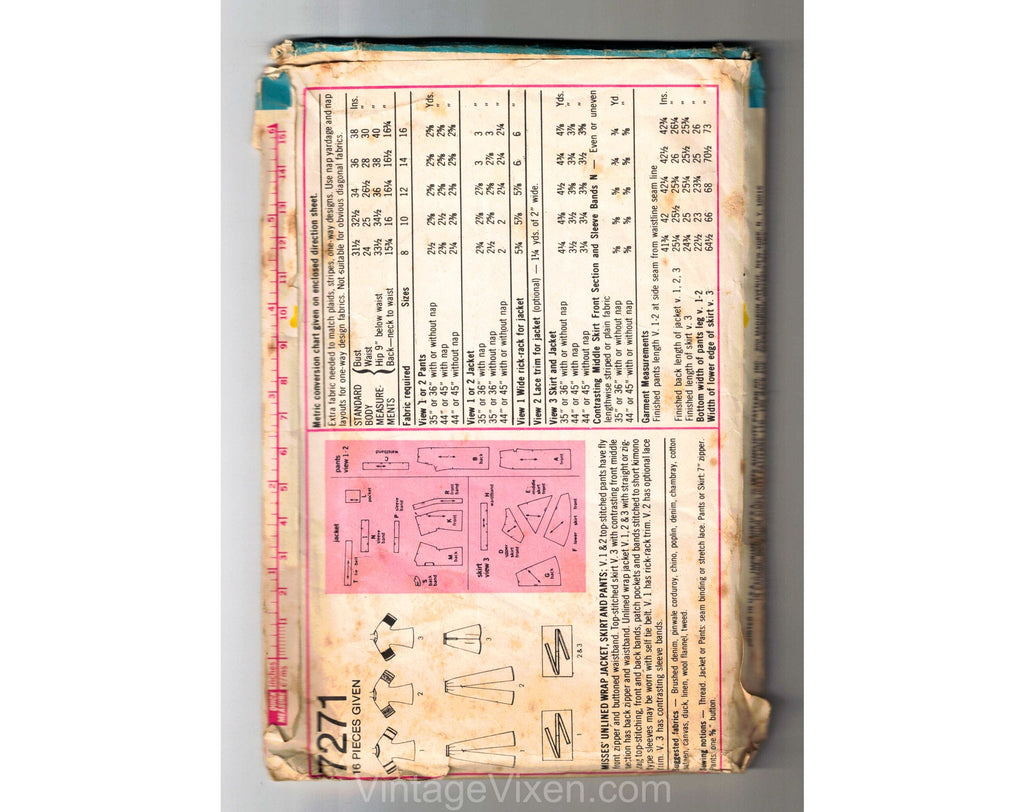 7271
16 PIECES GIVEN
1
2
3
1
2
3
1
2 & 3
MISSES' UNLINED WRAP JACKET, SKIRT AND PANTS: V. 1 & 2 top-stitched pants have fly
front zipper and buttoned waistband. Top-stitched skirt V. 3 with contrasting front middle
section has back zipper and waistband. Unlined wrap jacket V. 1, 2 & 3 with straight or zig-
zag top-stitching, front and back bands, patch pockets and bands stitched to short kimono
type sleeves may be worn with self tie belt. V. 1 has rick-rack trim. V. 2 has optional lace
trim. V. 3 has contrasting sleeve bands.
Suggested fabrics — Brushed denim, pinwale corduroy, chino, poplin, denim, chambray, cotton
canvas, duck, linen, wool flannel, tweed.
Sewing notions — Thread. Jacket or Pants: seam binding or stretch lace. Pants or Skirt: 7" zipper.
Pants: one button.
jacket
T tie belt
L pocket
N sleeve band
P sleeve band
S back band
M back
K front
R front band
pants
view 1-2
C waistband
B back
A front
skirt
view 3
H waistband
G back
D upper skirt front
E middle skirt front
F lower skirt front
Metric conversion chart given on enclosed direction sheet.
Extra fabric needed to match plaids, stripes, one-way designs. Use nap yardage and nap
layouts for one-way design fabrics. Not suitable for obvious diagonal fabrics.
STANDARD BODY MEASUREMENTS
Bust 31½ 32½ 34 36 38 Ins.
Waist 24 25 26½ 28 30 "
Hip 9" below waist 33½ 34½ 36 38 40 "
Back—neck to waist 15¾ 16 16¼ 16½ 16¾ "
Fabric required Sizes 8 10 12 14 16
View 1 or 2 Pants
35" or 36" with or without nap Yds.
44" or 45" with nap "
44" or 45" without nap "
View 1 or 2 Jacket
35" or 36" with nap "
35" or 36" without nap "
44" or 45" with or without nap "
View 1 Wide rick-rack for jacket 5¾ 5⅞ 5⅞ 6 6 "
View 2 Lace trim for jacket (optional) — 1¼ yds. of 2" wide.
View 3 Skirt and Jacket
35" or 36" with or without nap Yds.
44" or 45" with nap "
44" or 45" without nap "
Contrasting Middle Skirt Front Section and Sleeve Bands N — Even or uneven
lengthwise striped or plain fabric
35" or 36" with or without nap Yd
44" or 45" with or without nap "
Garment Measurements
Finished pants length V. 1-2 at side seam from waistline seam line
41¾ 42 42¼ 42½ 42¾ Ins.
Finished back length of jacket v. 1, 2, 3 25¼ 25½ 25¾ 26 26¼ "
Finished length of skirt v. 3 24¾ 25 25¼ 25½ 25¾ "
Bottom width of pants leg v. 1-2 22½ 23 23¾ 25 26 "
Width of lower edge of skirt v. 3 64½ 66 68 70½ 73 "
VintageVixen.com